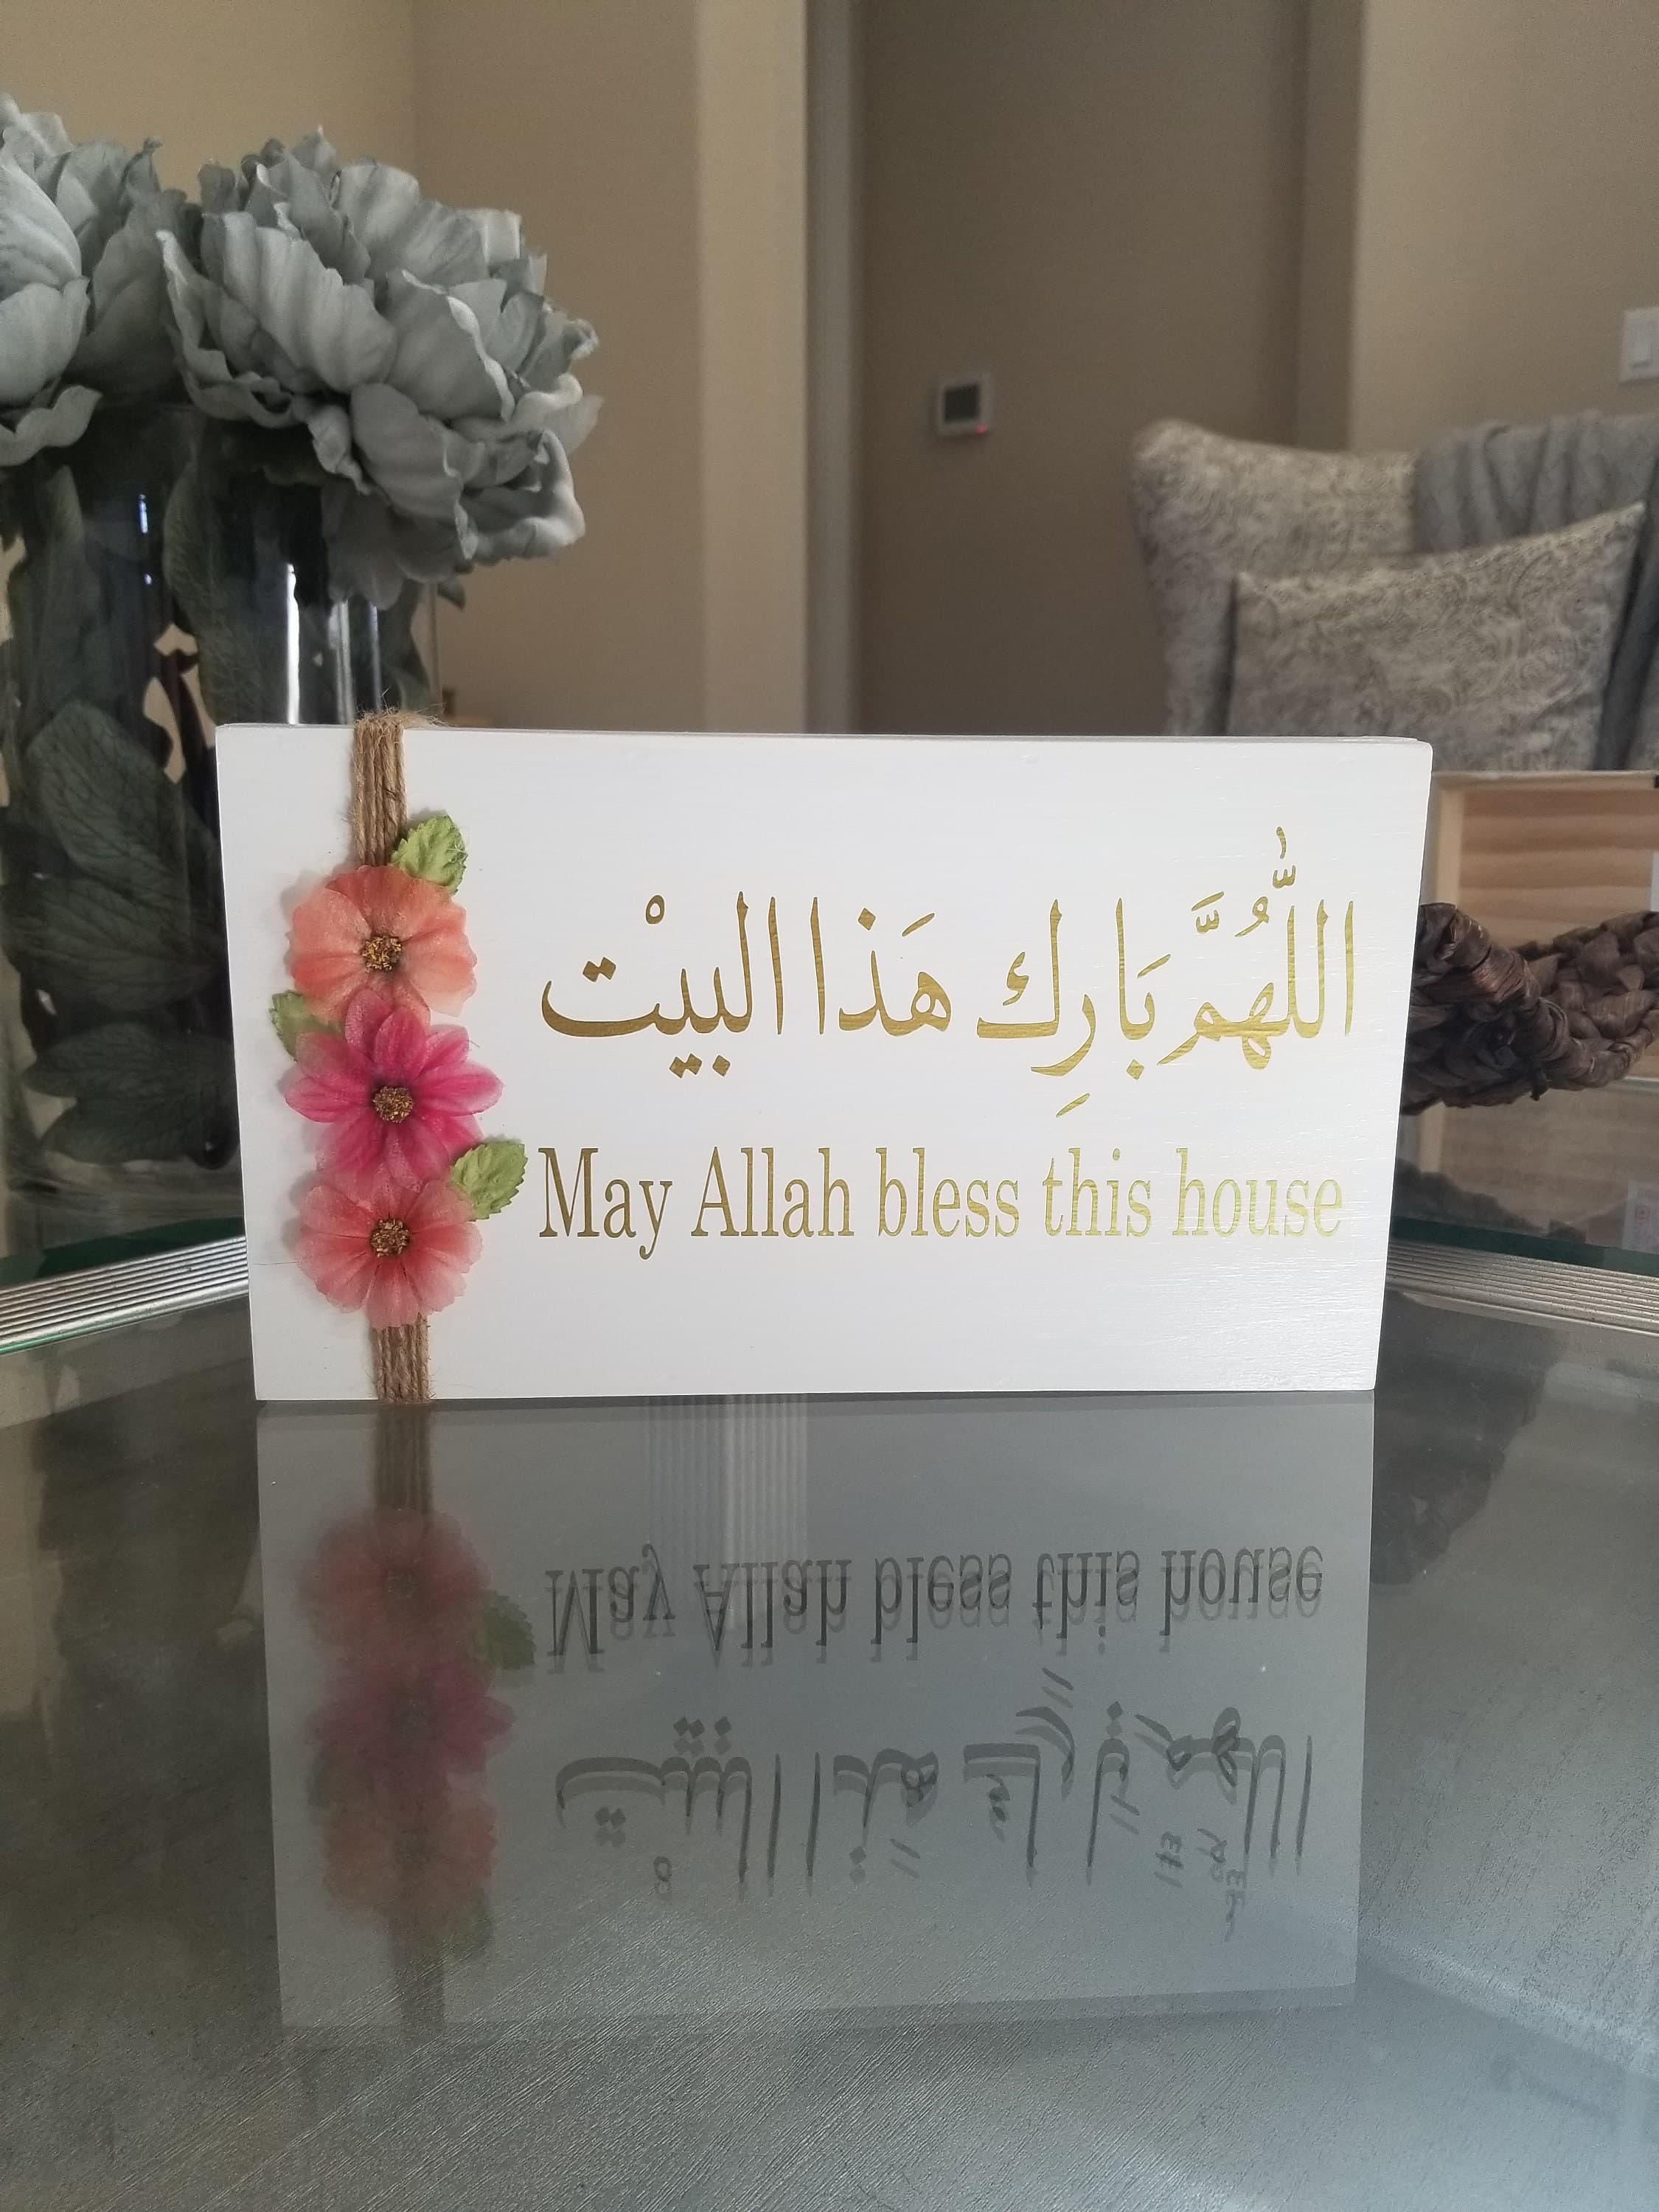 اللَّهُمَّ بَارِك هَذا البيْت
May Allah bless this house